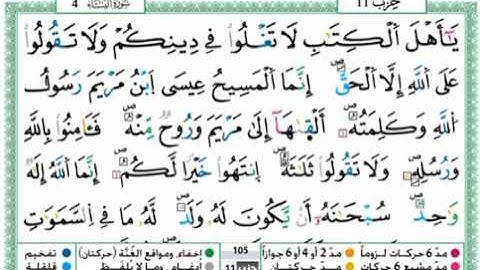 4 سُورَةُ النِّسَاء
حِزْب 11
يَـٰٓأَهْلَ ٱلْكِتَـٰبِ لَا تَغْلُوا۟ فِے دِينِكُمْ وَلَا تَقُولُوا۟
عَلَى ٱللَّهِ إِلَّا ٱلْحَقَّ ۖ إِنَّمَا ٱلْمَسِيحُ عِيسَى ٱبْنُ مَرْيَمَ رَسُولُ
ٱللَّهِ وَكَلِمَتُهُۥ ۖ أَلْقَىٰهَآ إِلَىٰ مَرْيَمَ وَرُوحٌ مِّنْهُ ۖ فَـَٔامِنُوا۟ بِٱللَّهِ
وَرُسُلِهِۦ ۖ وَلَا تَقُولُوا۟ ثَلَـٰثَةٌ ۖ ٱنتَهُوا۟ خَيْرًا لَّكُمْ ۖ إِنَّمَا ٱللَّهُ إِلَـٰهٌ
وَٰحِدٌ ۖ سُبْحَـٰنَهُۥٓ أَنْ يَّكُونَ لَهُۥ وَلَدٌ ۖ لَّهُۥ مَا فِے ٱلسَّمَـٰوَٰتِ
مدّ 6 حركات لزوماً مدّ 2 أو 4 أو 6 جوازاً 105 إخفاء، ومواقع الغُنَّة (حركتان) تفخيم
مدّ مشبع 6 حركات مدّ حركتان 11 إدغام، وما لا يُلفظ قلقلة